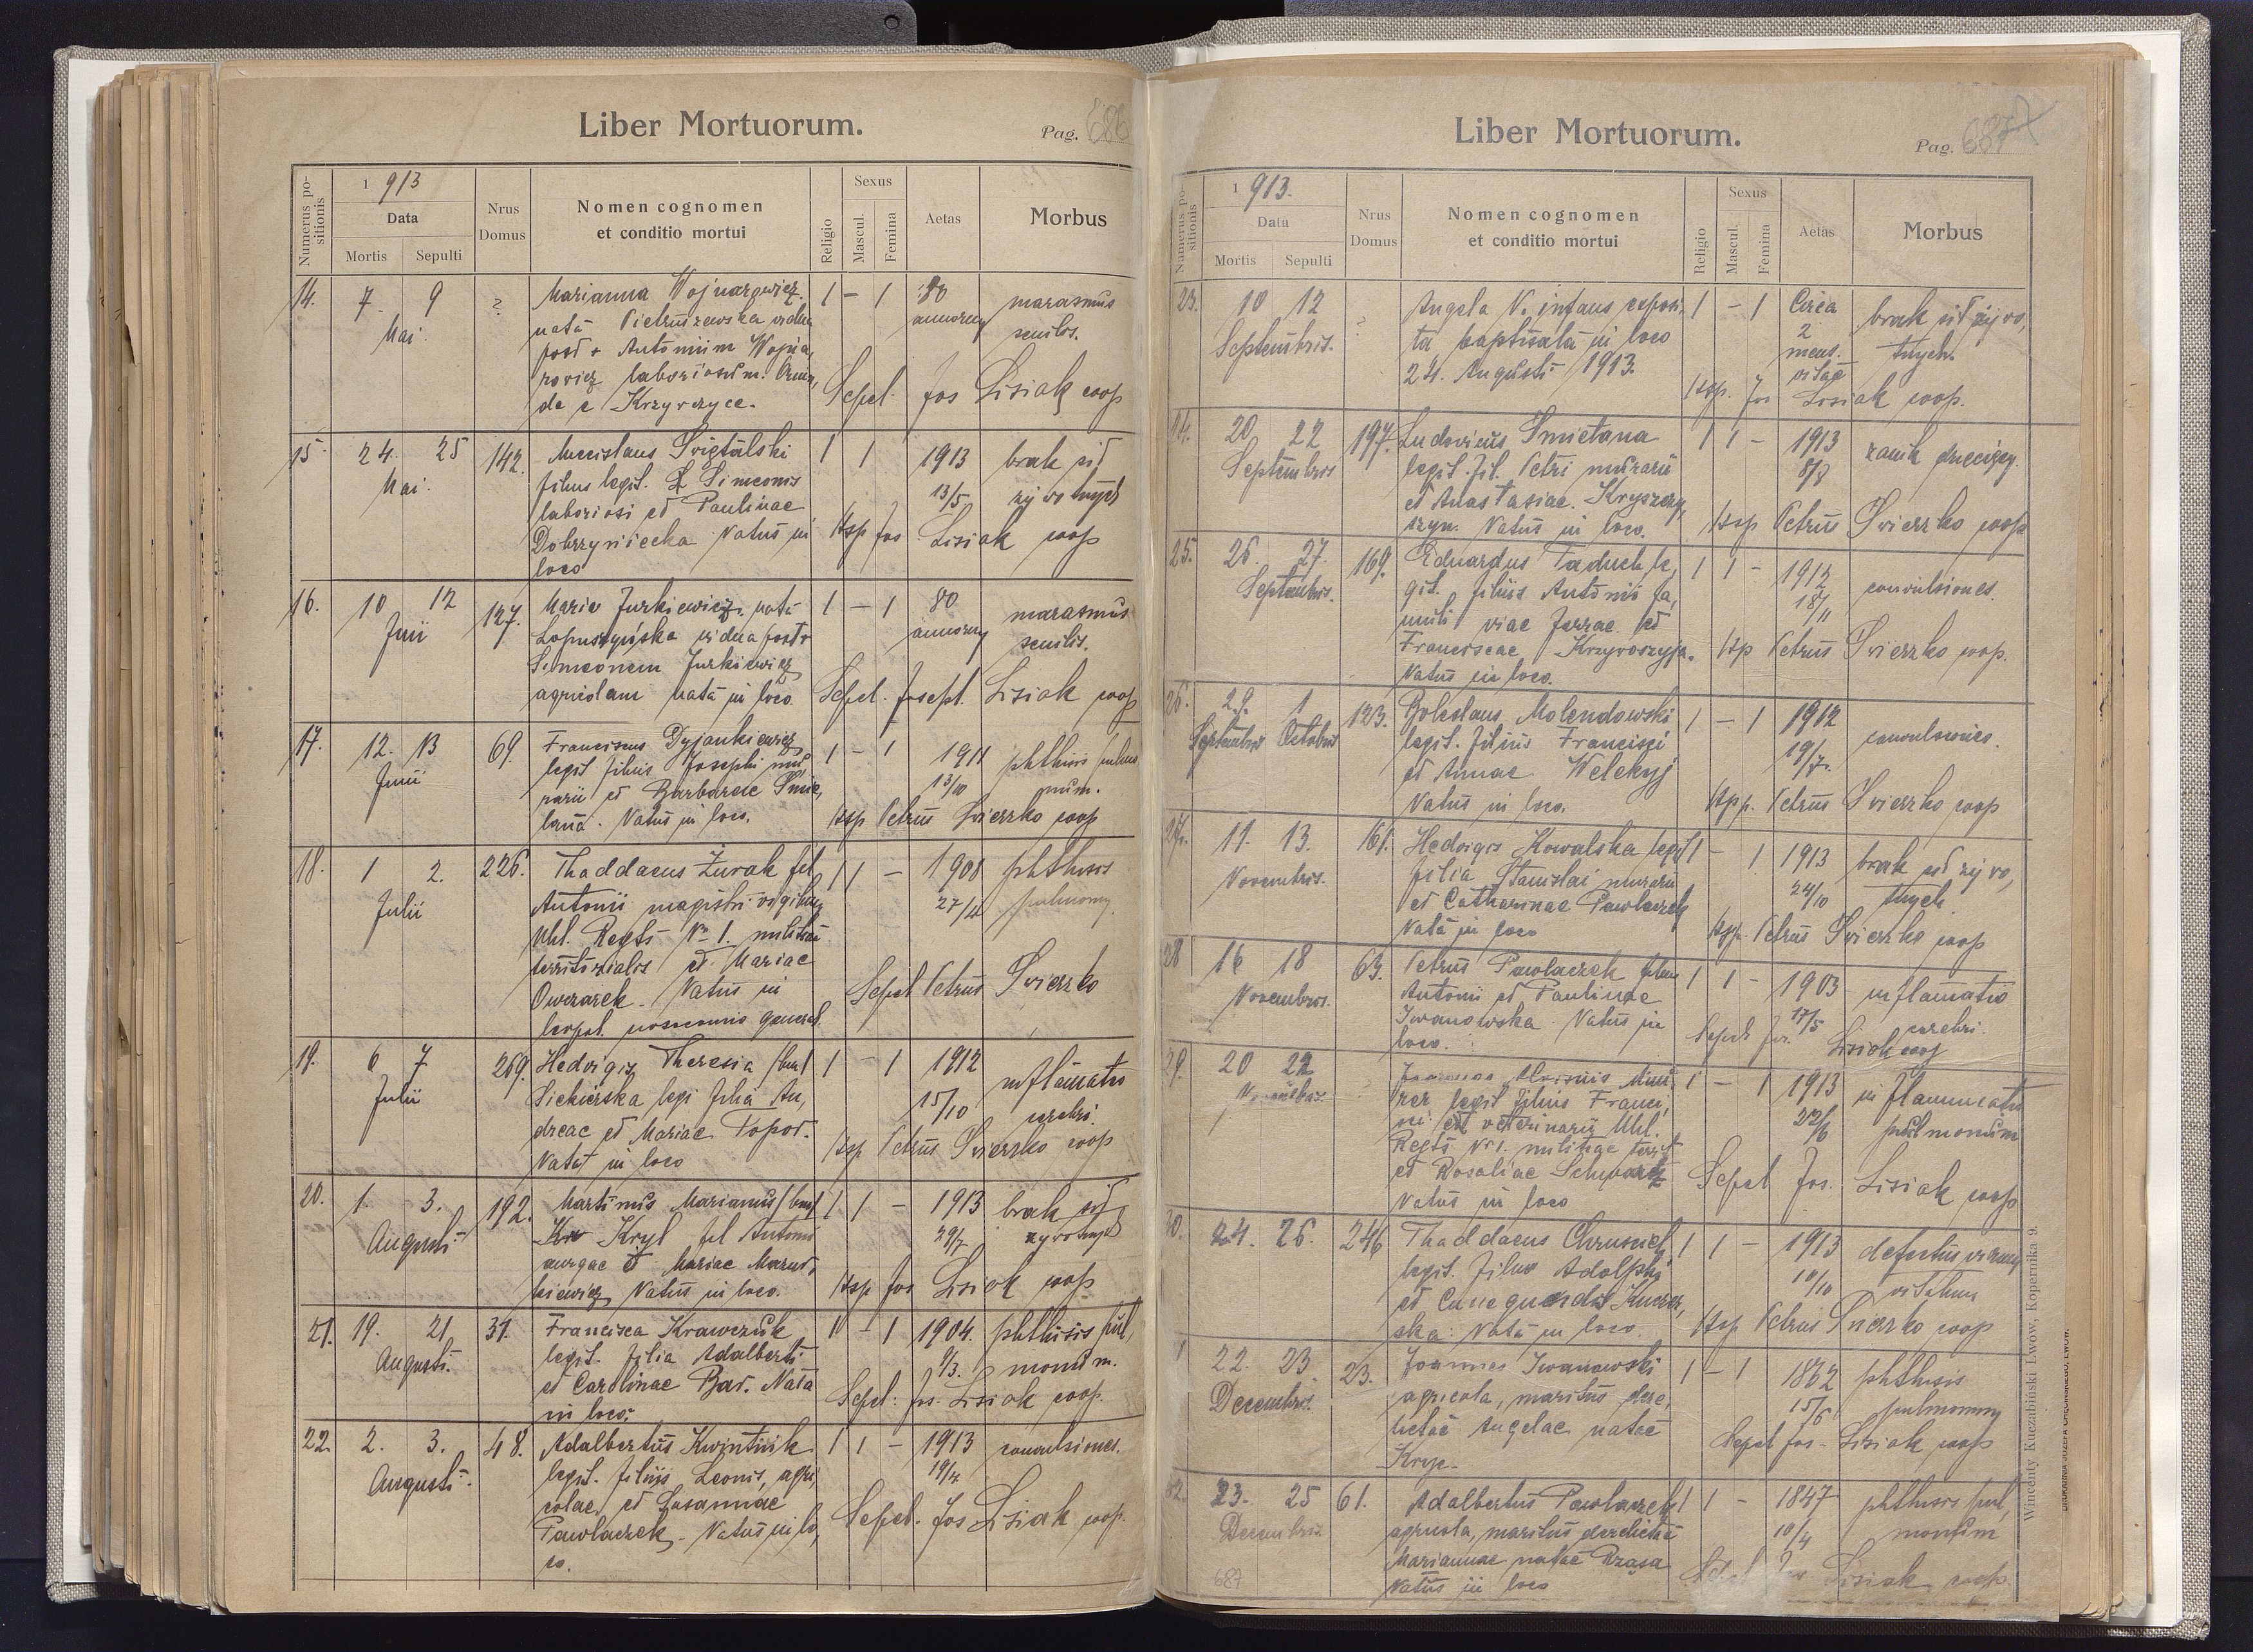 Liber Mortuorum.
Pag. 686
Numerus positionis
1 913
Data
Mortis Sepulti
Nrus Domus
Nomen cognomen
et conditio mortui
Religio
Sexus
Mascul.
Femina
Aetas
Morbus
14. 7 9 Mai ? Marianna 1 – 1 80 annorum marasmus senilis.
nata Pietruszewska vidua
post + Antonium
laboriosum.
de e Krzywczyce.
Sepel. Jos Lisiak coop
15. 24. 25 Mai 142. 1 1 1913 13/5 brak sił żywotnych
filius legit. Simeonis
laboriosi et Paulinae
Dobrzyniecka Natus in
loco
Hsp Jos Lisiak coop
16. 10 12 Junii 127. Maria Jurkiewicz nata 1 – 1 80 annorum marasmus senilis.
Łopuszyńska vidua post +
Simeonem Jurkiewicz
agricolam nata in loco
Sepel. Joseph. Lisiak coop
17. 12. 13 Junii 69. Franciscus Dyjankiewicz 1 – 1 1911 13/10 phthisis pulmonum.
legit filius Josephi mu,
rarii et Barbarae Smie,
tana. Natus in loco.
Hsp Petrus Świerzko coop
18. 1 2. Julii 226. Thaddaeus Żurak fil 1 1 – 1908 phthisis pulmonum
Antonii magistri vigilum
Uhl. Regts № 1. militiae
territorialis et Mariae
Owczarek. Natus in
leopol. nosocomio general.
Sepel Petrus Świerzko
19. 6 7 Julii 269. Hedvigis Theresia (bin) 1 – 1 1912 15/10 inflamatio cerebri.
Siekierska legi filia An,
dreae et Mariae Topor.
Nata in loco
Hsp Petrus Świerzko coop
20. 1. 3. Augusti 192. Martinus Marianus (bin) 1 1 – 1913 29/7 brak sił żywotnych
Kryl fil Antonii
aurigae et Mariae
Natus in loco.
Hsp Jos Lisiak coop
21. 19. 21 Augusti 31. Francisca Krawczuk 1 – 1 1904. 9/3. phthisis pul,
monum.
legit. filia Adalberti
et Carolinae Bar. Nata
in loco.
Sepel: Jos. Lisiak coop.
22. 2. 3. Augusti 48. Adalbertus Kwintnik 1 1 – 1913 19/4 convulsiones.
legit. filius Leonis, agri,
colae et Susannae
Pawlaczek. Natus in lo,
co.
Sepel. Jos Lisiak coop.
Liber Mortuorum.
Pag. 687
Numerus positionis
1 913.
Data
Mortis Sepulti
Nrus Domus
Nomen cognomen
et conditio mortui
Religio
Sexus
Mascul.
Femina
Aetas
Morbus
23. 10 12 Septembris. ? Angela N. infans exposi, 1 – 1 Circa 2 mens. vitae brak sił żywo,
tnych.
ta baptisata in loco
24. Augusti 1913.
Hsp. Jos Lisiak coop.
20 22 Septembris 197. Ludovicus Smietana 1 1 – 1913 8/8 zanik dziecięcy.
legit. fil. Petri murarii
et Anastasiae.
Natus in loco.
Hsp Petrus Świerzko coop
25. 26. 27. Septembris. 169. Eduardus Taduch le, 1 1 – 1912 18/11 convulsiones.
git. filius Antonii fa,
muli viae ferrae et
Franciscae Krzywoszyja.
Natus in loco.
Hsp Petrus Świerzko coop.
26. 29. 1 Septembris Octobris 123. Boleslaus Molendowski 1 – 1 1912 19/7. convulsiones.
legit. filius Francisci
et Annae Welekyj
Natus in loco.
Hsp. Petrus Świerzko coop
27. 11. 13. Novembris. 161. Hedvigis Kowalska legit 1 – 1 1913 24/10 brak sił żywo,
tnych
filia Stanislai murarii
et Catharinae Pawlaczek
Nata in loco
Hsp. Petrus Świerzko coop
28 16 18 Novembris. 63. Petrus Pawlaczek filius 1 1 – 1903 17/5 inflamatio cerebri.
Antonii et Paulinae
Iwanowska. Natus in
loco.
Sepel Jos. Lisiak coop
29. 20 22 1 – 1 1913 22/6 inflammatio pulmonum
legit filius Franci,
veterinarii Uhl.
Regts № 1. militiae territ
et Rosaliae Schwartz
Natus in loco
Sepel Jos. Lisiak coop
30. 24. 26. 246 Thaddaeus Chrusciel 1 1 – 1913 10/10 defectus virium vitalium
legit. filius Adolphi
et Cunegundis
Nata in loco.
Hsp Petrus Świerzko coop
22. 23 Decembris. 23. Joannes Iwanowski 1 – 1 1862 15/6 phthisis pulmonum
agricola, maritus dere,
lictae Angelae natae
Kryc.
Sepel Jos. Lisiak coop
32. 23. 25 Decembris 61. Adalbertus Pawlaczek 1 1 – 1847 10/4 phthisis pul,
monum
agricola, maritus derelictae
Mariannae natae Rząsa
Natus in loco
Sepel Jos Lisiak coop.
687
Wincenty Kuczabiński Lwów, Kopernika 9.